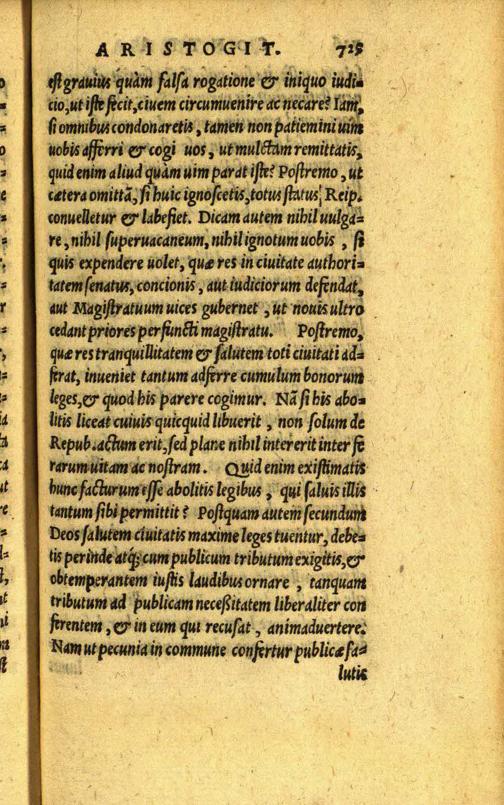 ARISTOGIT. 725
est grauius quàm falsa rogatione & iniquo iudi-
cio, ut iste fecit, ciuem circumuenire ac necare? Iam,
si omnibus condonaretis, tamen non patiemini uim
uobis afferri & cogi uos, ut mulctam remittatis,
quid enim aliud quàm uim parat iste? Postremo, ut
cætera omittã, si huic ignoscetis, totus status Reip.
conuelletur & labefiet. Dicam autem nihil uulga-
re, nihil superuacaneum, nihil ignotum uobis, si
quis expendere uolet, quæ res in ciuitate authori-
tatem senatus, concionis, aut iudiciorum defendat,
aut Magistratuum uices gubernet, ut nouis ultro
cedant priores perfuncti magistratu. Postremo,
quæ res tranquillitatem & salutem toti ciuitati ad-
ferat, inueniet tantum adferre cumulum bonorum
leges, & quod his parere cogimur. Nã si his abo-
litis liceat cuiuis quicquid libuerit, non solum de
Repub. actum erit, sed plane nihil intererit inter fe
rarum uitam ac nostram. Quid enim existimatis
hunc facturum esse abolitis legibus, qui saluis illis
tantum sibi permittit? Postquam autem secundum
Deos salutem ciuitatis maxime leges tuentur, debe-
tis perinde atq; cum publicum tributum exigitis, &
obtemperantem iustis laudibus ornare, tanquam
tributum ad publicam necessitatem liberaliter con
ferentem, & in eum qui recusat, animaduertere.
Nam ut pecunia in commune confertur publicæ sa-
lutis